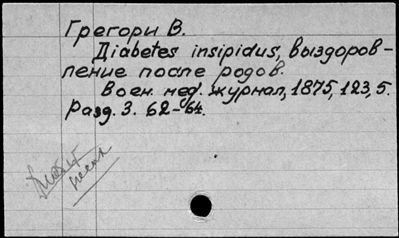 Грегори В.
Діabetes insipidus, выздоров-
ление после родов.
Воен. мед. журнал, 1875, 123, 5.
Разд. 3. 62-64.